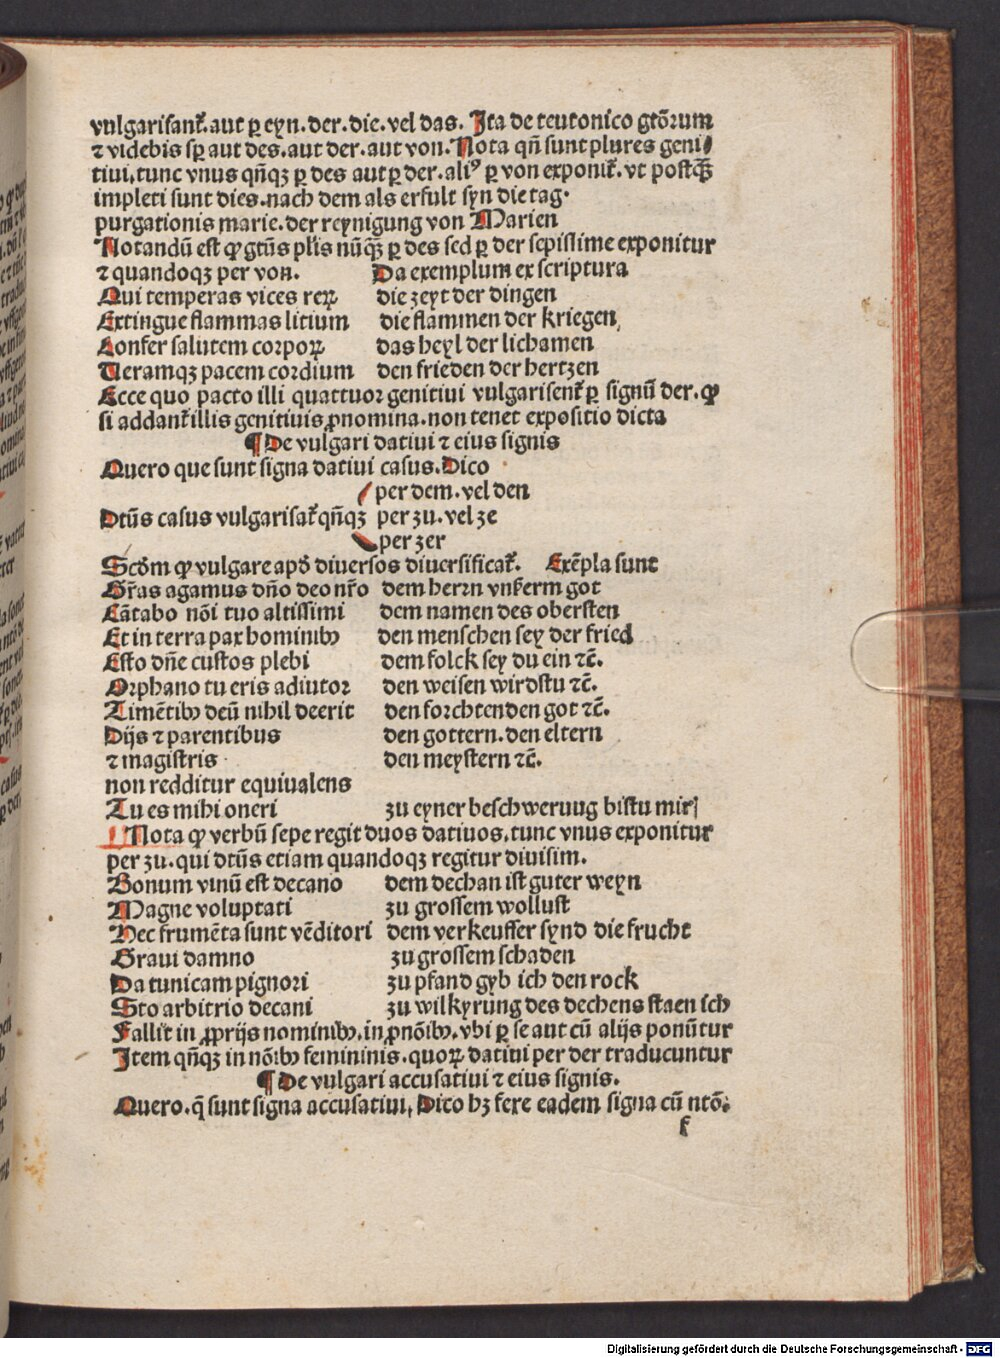 vulgarisant᷑. aut ꝑ eyn. der. die. vel das. Ita de teutonico gtõrum
⁊ videbis sꝑ aut des. aut der. aut von. Nota qñ sunt plures geni⸗
tiui, tunc vnus qñqꝫ ꝑ des aut ꝑ der. aliꝰ ꝑ von exponit᷑. vt postqꝫ̃
impleti sunt dies. nach dem als erfult syn die tag.
purgationis marie. der reynigung von Marien
Notandũ est ꝙ gtũs plis̃ nũqꝫ̃ ꝑ des sed ꝑ der sepissime exponitur
⁊ quandoqꝫ per von. Da exemplum ex scriptura
Qui temperas vices reꝝ die zeyt der dingen
Extingue flammas litium die flammen der kriegen,
Confer salutem corpoꝝ das heyl der lichamen
Veramqꝫ pacem cordium den frieden der hertzen
Ecce quo pacto illi quattuor genitiui vulgarisent᷑ ꝑ signũ der. ꝙ
si addant᷑ illis genitiuis ꝓnomina. non tenet expositio dicta
¶ De vulgari datiui ⁊ eius signis
Quero que sunt signa datiui casus. Dico
per dem. vel den
Dtũs casus vulgarisat᷑ qñqꝫ per zu. vel ze
per zer
Scd̃m ꝙ vulgare apd̕ diuersos diuersificat᷑. Exẽpla sunt
Gr̃as agamus dño deo nr̃o dem herrn vnserm got
Cãtabo nõi tuo altissimi dem namen des obersten
Et in terra pax hominibꝰ den menschen sey der fried
Esto dñe custos plebi dem folck sey du ein ⁊c̃.
Orphano tu eris adiutor den weisen wirdstu ⁊c̃.
Timẽtibꝰ deũ nihil deerit den forchtenden got ⁊c̃.
Dijs ⁊ parentibus den gottern. den eltern
⁊ magistris den meystern ⁊c̃.
non redditur equiualens
Tu es mihi oneri zu eyner beschweruug bistu mir
¶ Nota ꝙ verbũ sepe regit duos datiuos, tunc vnus exponitur
per zu. qui dtũs etiam quandoqꝫ regitur diuisim.
Bonum vinũ est decano dem dechan ist guter weyn
Magne voluptati zu grossem wollust
Hec frumẽta sunt vẽditori dem verkeuffer synd die frucht
Graui damno zu grossem schaden
Da tunicam pignori zu pfand gyb ich den rock
Sto arbitrio decani zu wilkyrung des dechens staen ich
Fallit in ꝓprijs nominibꝰ, in ꝓnõibꝰ. vbi ꝑ se aut cũ alijs ponũtur
Item qñqꝫ in nõibꝰ femininis. quoꝝ datiui per der traducuntur
¶ De vulgari accusatiui ⁊ eius signis.
Quero. q̃ sunt signa accusatiui, Dico hꝫ fere eadem signa cũ ntõ.
f
Digitalisierung gefördert durch die Deutsche Forschungsgemeinschaft - DFG